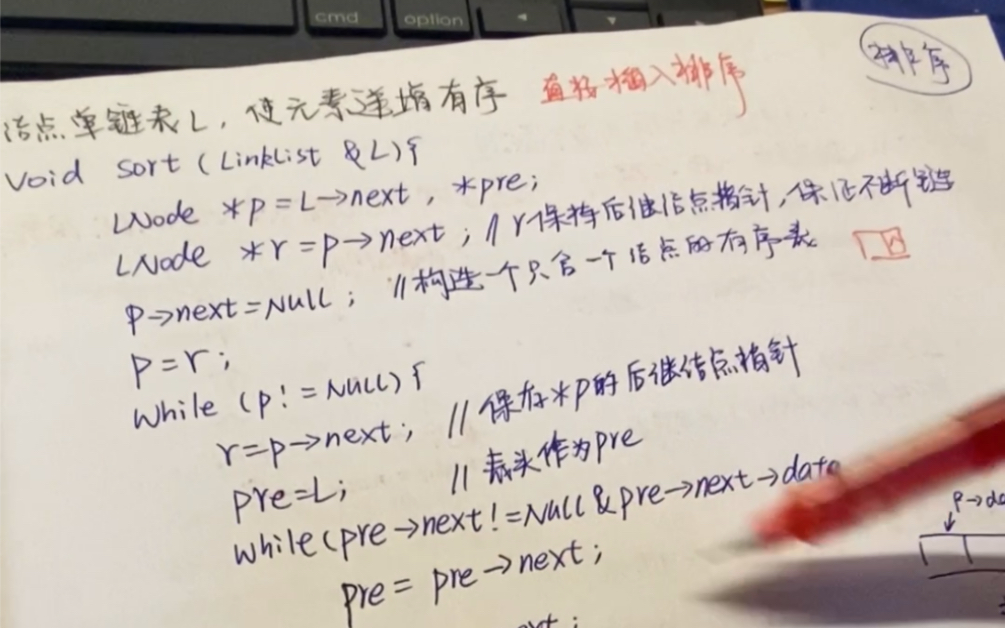 cmd option
排序
结点单链表L，使元素递增有序 直接插入排序
void sort (LinkList &L){
LNode *p=L→next , *pre;
LNode *r=p→next ; //r保持后继结点指针，保证不断链
p→next=NULL ; //构造一个只含一个结点的有序表
p=r;
while (p!=NULL){
r=p→next; //保存*p的后继结点指针
pre=L; //表头作为pre
while(pre→next!=NULL&pre→next→data
pre= pre→next;